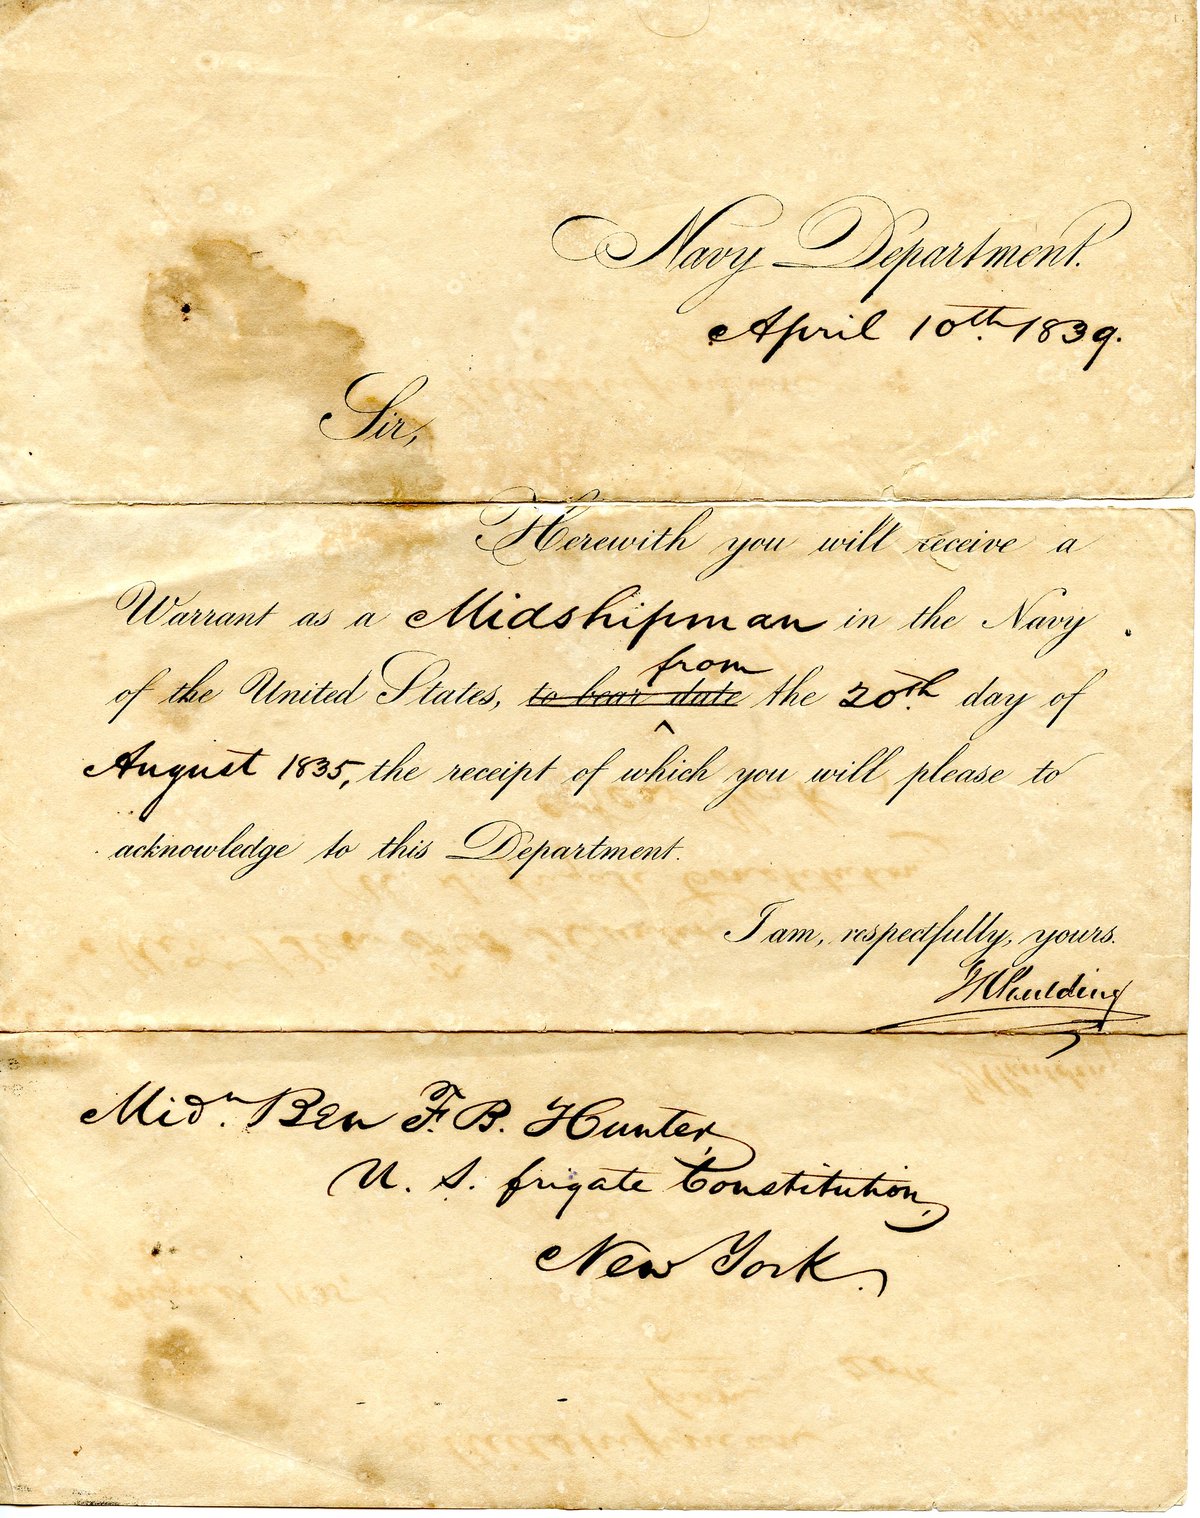 Navy Department.
April 10th 1839.
Sir,
Herewith you will receive a
Warrant as a Midshipman in the Navy
from
of the United States, to bear date the 20th day of
August 1835, the receipt of which you will please to
acknowledge to this Department.
I am, respectfully, yours.
JKPaulding
Midn. Ben F. B. Hunter,
U. S. frigate Constitution,
New York.